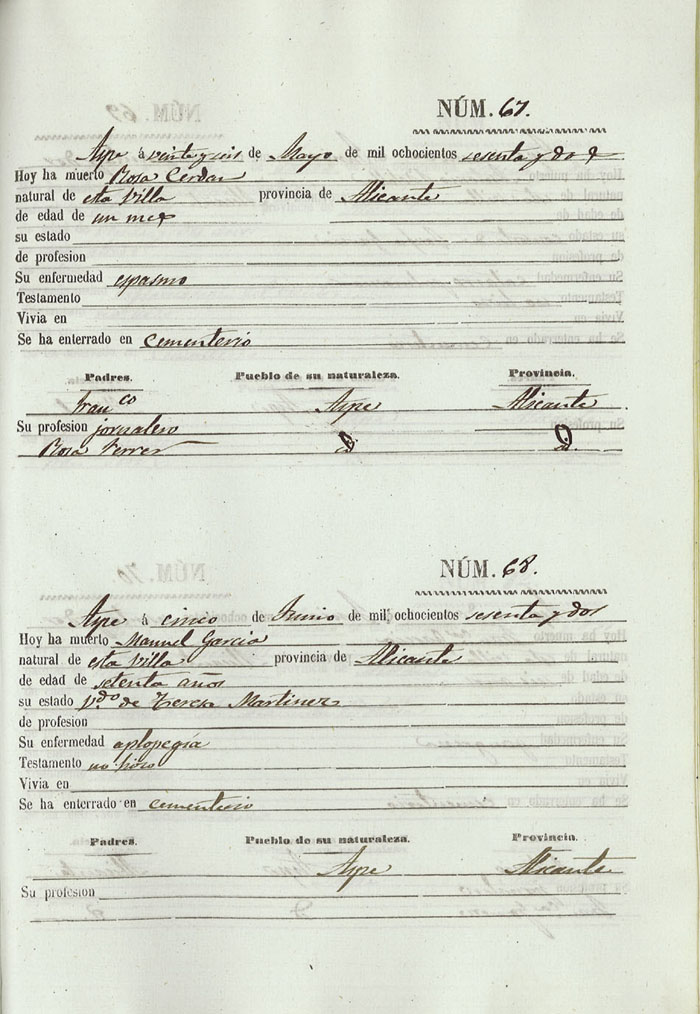 NÚM. 67.
Aspe á veinte y seis de Mayo de mil ochocientos sesenta y dos
Hoy ha muerto Rosa Cerdan
natural de esta Villa provincia de Alicante
de edad de un mes
su estado
de profesion
Su enfermedad espasmo
Testamento
Vivia en
Se ha enterrado en cementerio
Padres. Pueblo de su naturaleza. Provincia.
Franco Aspe Alicante
Su profesion jornalero
Rosa Ferrer
NÚM. 68.
Aspe á cinco de Junio de mil ochocientos sesenta y dos
Hoy ha muerto Manuel Garcia
natural de esta Villa provincia de Alicante
de edad de setenta años
su estado V.do de Teresa Martinez
de profesion
Su enfermedad aplopegía
Testamento no hizo
Vivia en
Se ha enterrado en cementerio
Padres. Pueblo de su naturaleza. Provincia.
Aspe Alicante
Su profesion